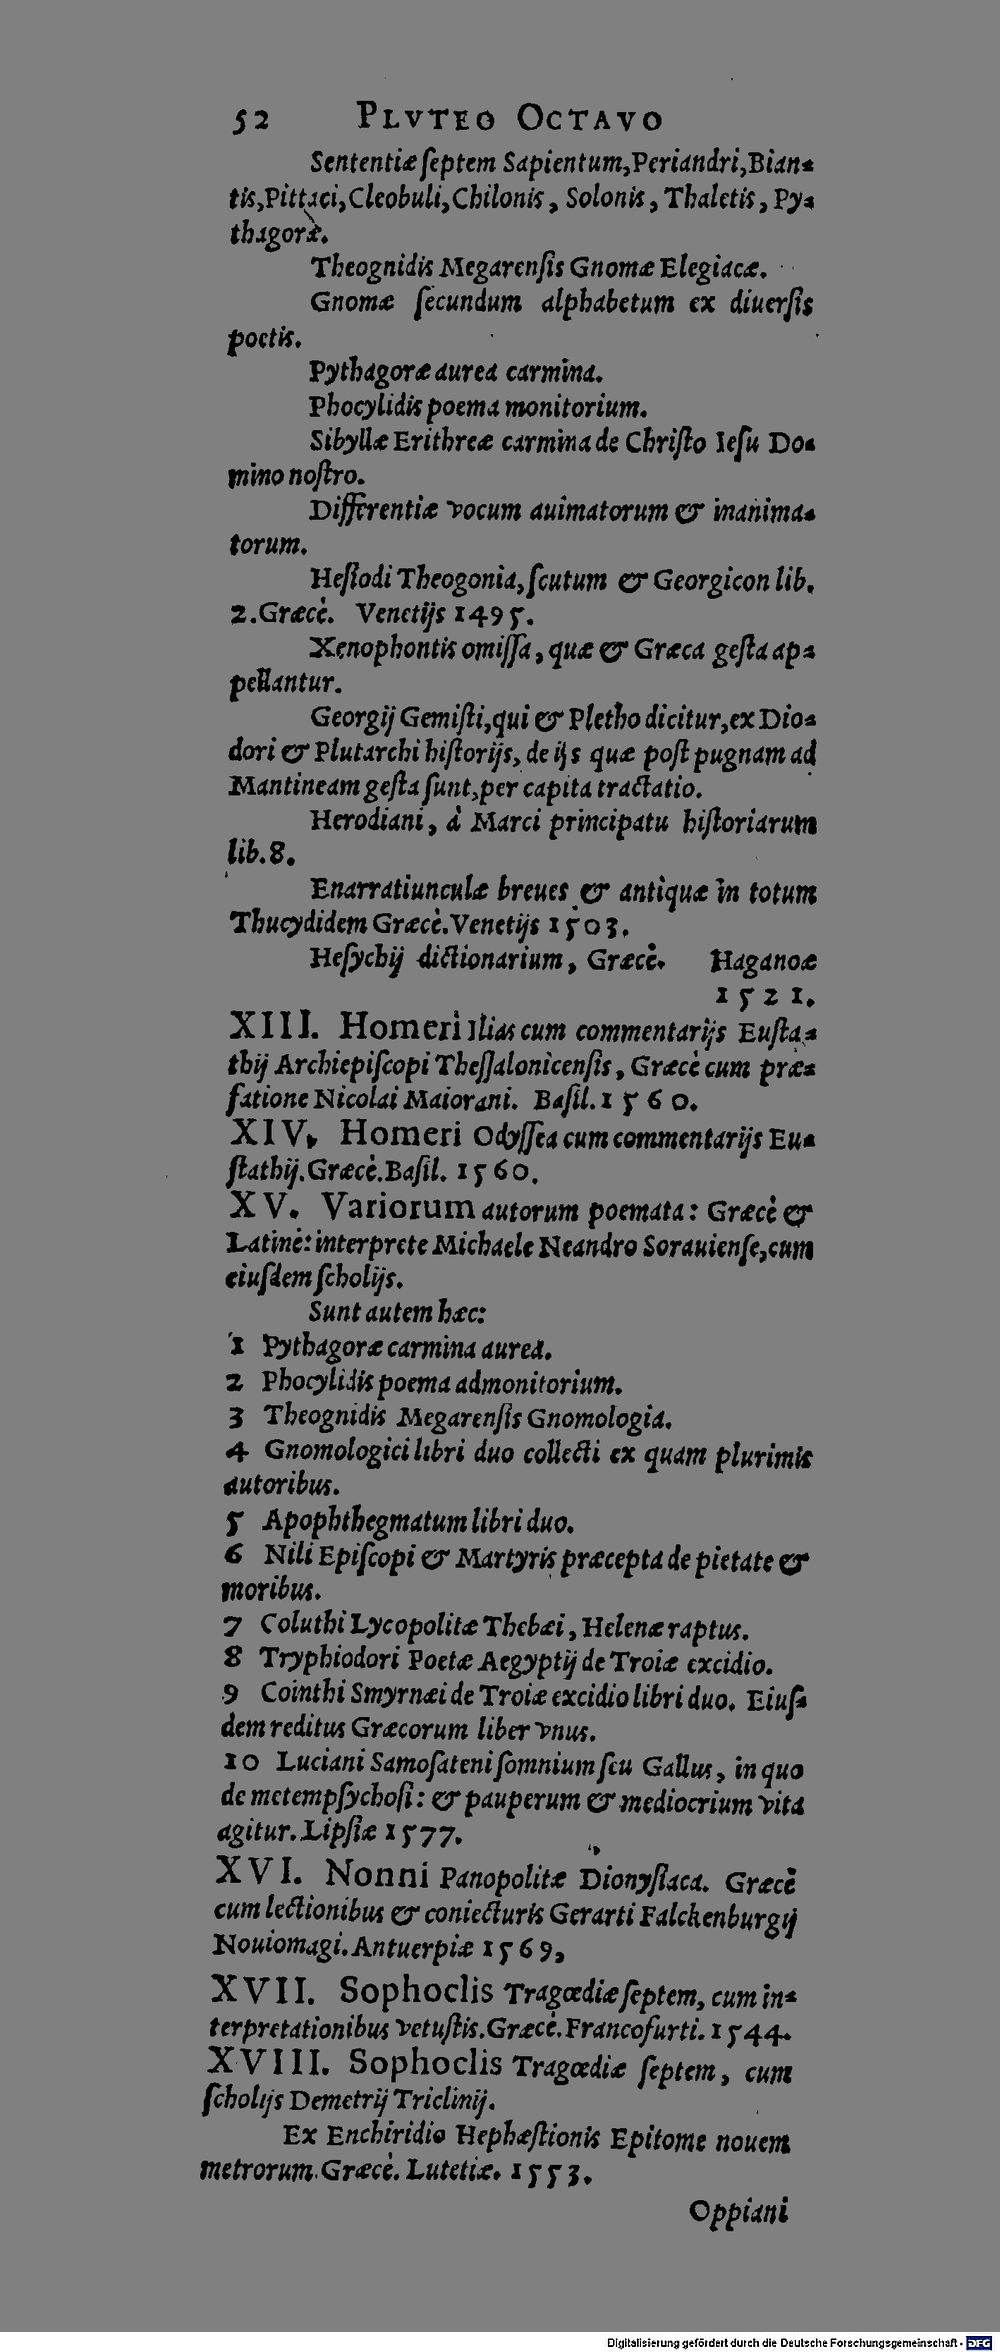 52 PLVTEO OCTAVO
Sententiæ ſeptem Sapientum,Periandri,Bian-
tis,Pittaci,Cleobuli,Chilonis, Solonis, Thaletis, Py-
thagoræ.
Theognidis Megarenſis Gnomæ Elegiacæ.
Gnomæ ſecundum alphabetum ex diuerſis
poetis.
Pythagoræ aurea carmina.
Phocylidis poema monitorium.
Sibyllæ Erithreæ carmina de Chriſto Ieſu Do-
mino noſtro.
Differentiæ vocum auimatorum & inanima-
torum.
Heſiodi Theogonia, ſcutum & Georgicon lib.
2.Græcè. Venetijs 1495.
Xenophontis omiſſa, quæ & Græca geſta ap-
pellantur.
Georgij Gemiſti,qui & Pletho dicitur,ex Dio-
dori & Plutarchi hiſtorijs, de ijs quæ poſt pugnam ad
Mantineam geſta ſunt,per capita tractatio.
Herodiani, à Marci principatu hiſtoriarum
lib.8.
Enarratiunculæ breues & antiquæ in totum
Thucydidem Græcè.Venetijs 1503.
Heſychij dictionarium, Græcè. Haganoæ
1521.
XIII. Homeri Ilias cum commentarijs Euſta-
thij Archiepiſcopi Theſſalonicenſis, Græcè cum præ-
fatione Nicolai Maiorani. Baſil.1560.
XIV. Homeri Odyſſea cum commentarijs Eu-
ſtathij.Græcè.Baſil. 1560.
XV. Variorum autorum poemata: Græcè &
Latinè: interprete Michaele Neandro Sorauienſe,cum
eiuſdem ſcholijs.
Sunt autem hæc:
1 Pythagoræ carmina aurea.
2 Phocylidis poema admonitorium.
3 Theognidis Megarenſis Gnomologia.
4 Gnomologici libri duo collecti ex quam plurimis
autoribus.
5 Apophthegmatum libri duo.
6 Nili Epiſcopi & Martyris præcepta de pietate &
moribus.
7 Coluthi Lycopolitæ Thebæi, Helenæ raptus.
8 Tryphiodori Poetæ Aegyptij de Troiæ excidio.
9 Cointhi Smyrnæi de Troiæ excidio libri duo. Eiuſ-
dem reditus Græcorum liber vnus.
10 Luciani Samoſateni ſomnium ſeu Gallus, in quo
de metempſychoſi: & pauperum & mediocrium vita
agitur. Lipſiæ 1577.
XVI. Nonni Panopolitæ Dionyſiaca. Græcè
cum lectionibus & coniecturis Gerarti Falckenburgij
Nouiomagi.Antuerpiæ 1569,
XVII. Sophoclis Tragœdiæ ſeptem, cum in-
terpretationibus vetuſtis.Græcè.Francofurti.1544.
XVIII. Sophoclis Tragœdiæ ſeptem, cum
ſcholijs Demetrij Triclinij.
Ex Enchiridio Hephæſtionis Epitome nouem
metrorum.Græcè. Lutetiæ. 1553.
Oppiani
Digitalisierung gefördert durch die Deutsche Forschungsgemeinschaft - DFG